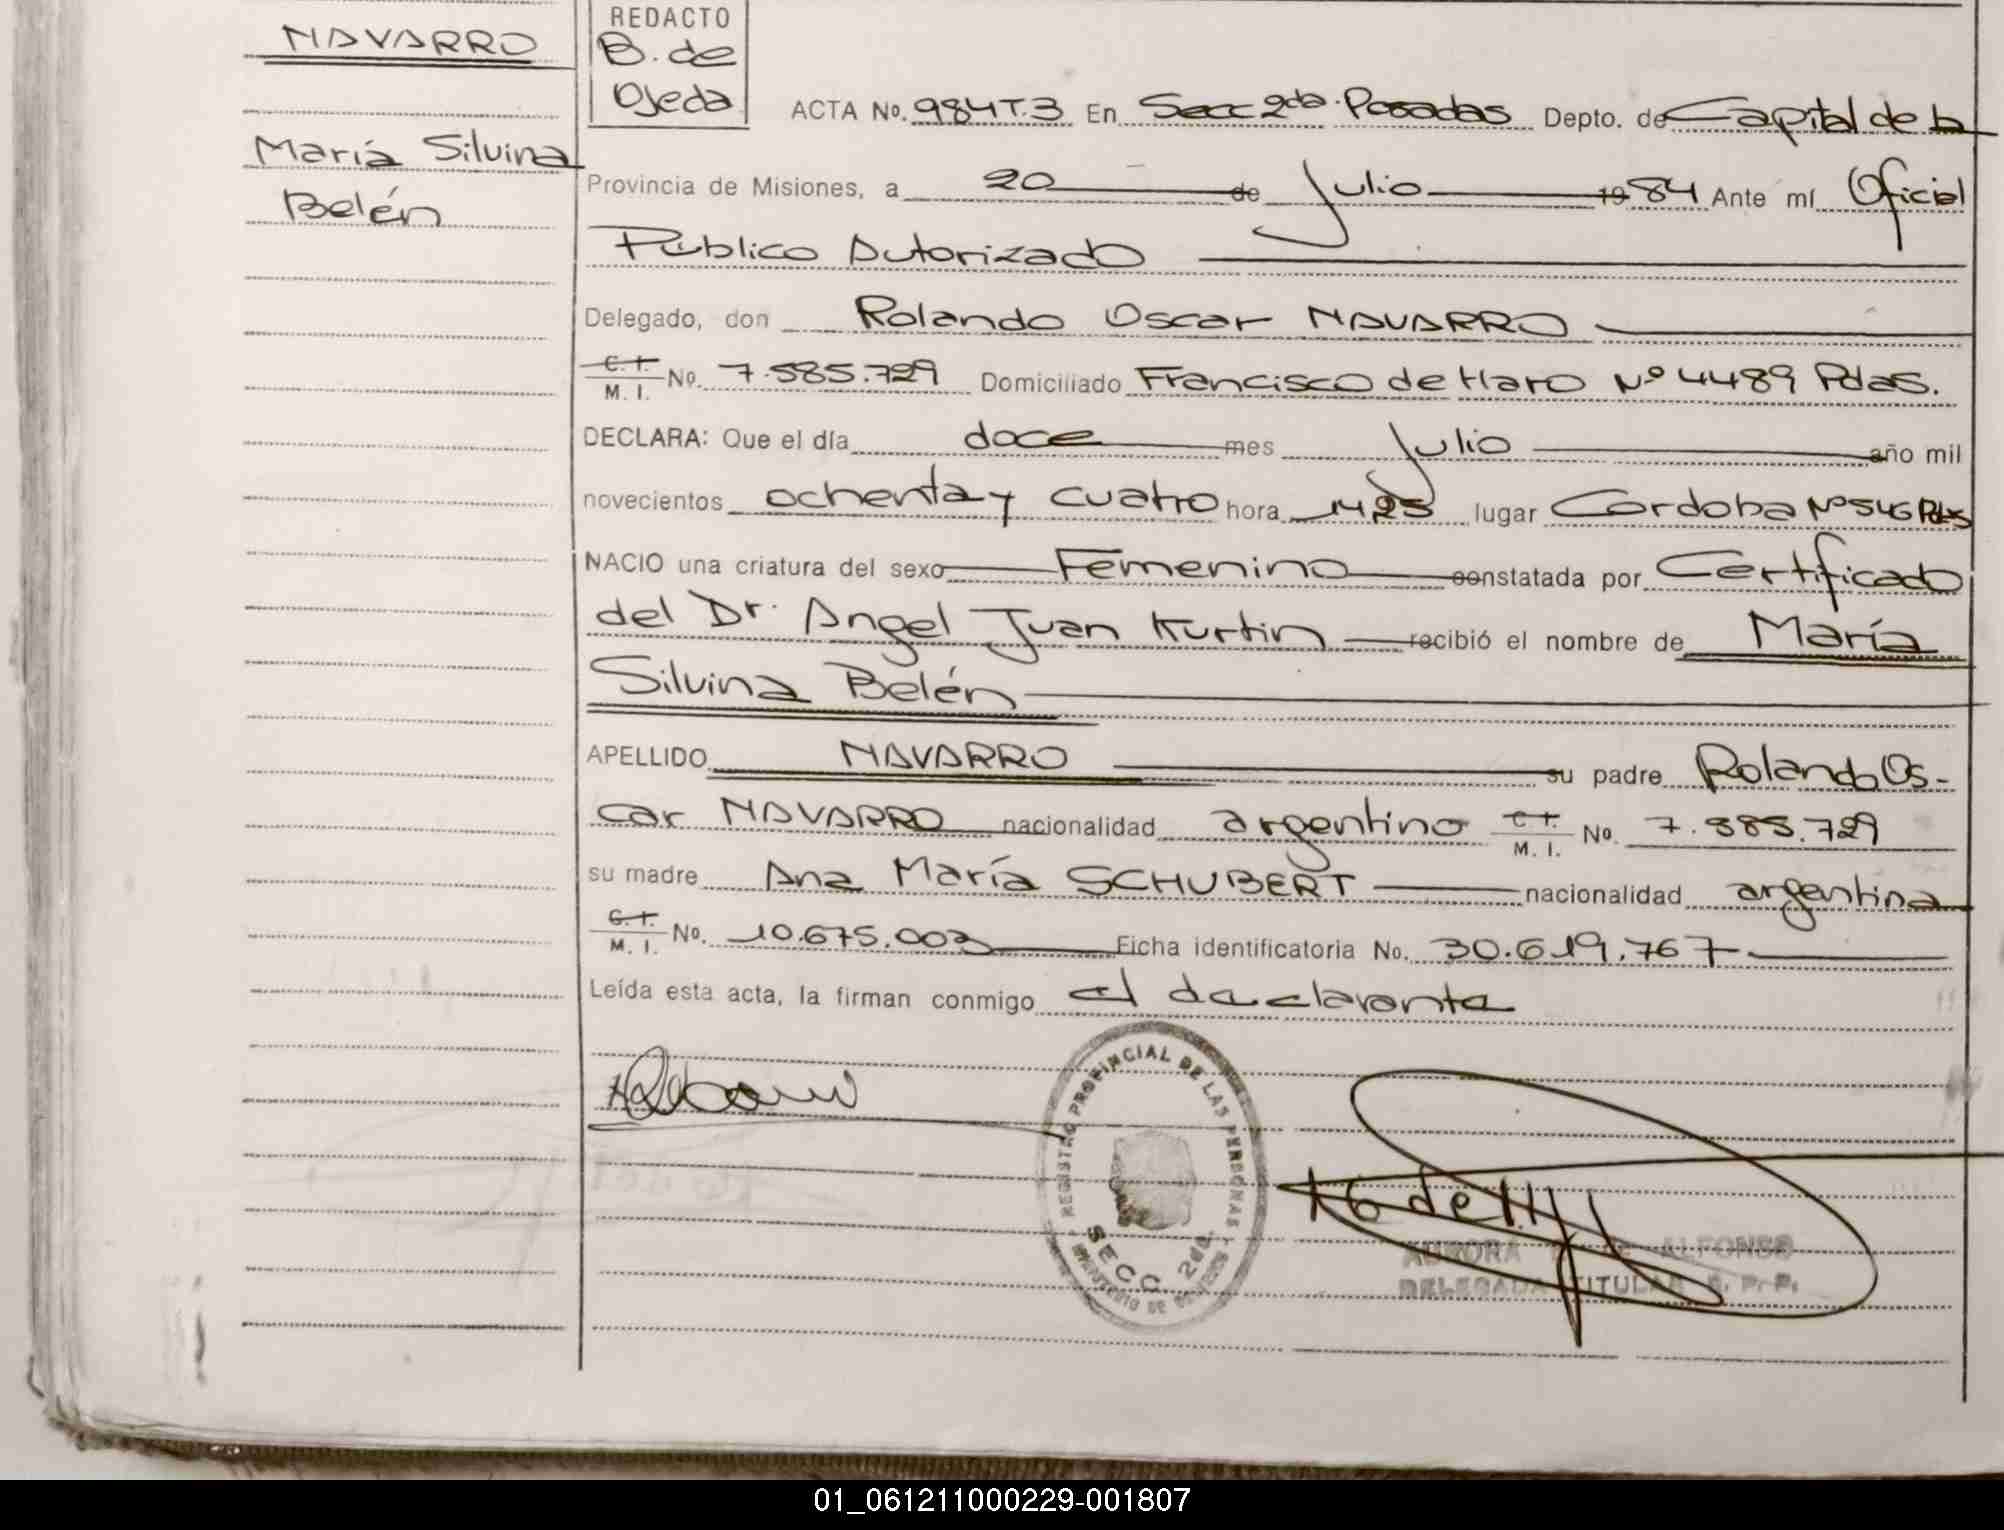 NAVARRO
María Silvina
Belén
REDACTO
B. de
Ojeda
ACTA No. 984T.3 En Secc 2da. Posadas Depto. de Capital de la
Provincia de Misiones, a 20 de Julio 1984 Ante mí Oficial
Público Autorizado
Delegado, don Rolando Oscar NAVARRO
C. I. / M. I. No. 7.585.729 Domiciliado Francisco de Haro Nº 4489 Pdas.
DECLARA: Que el día doce mes Julio año mil
novecientos ochenta y cuatro hora 1425 lugar Cordoba Nº 546 Pdas
NACIO una criatura del sexo Femenino constatada por Certificado
del Dr. Angel Juan Kurtin recibió el nombre de María
Silvina Belén
APELLIDO NAVARRO su padre Rolando Os-
car NAVARRO nacionalidad argentino C. I. / M. I. No. 7.585.729
su madre Ana María SCHUBERT nacionalidad argentina
C. I. / M. I. No. 10.675.003 Ficha identificatoria No. 30.619.767
Leída esta acta, la firman conmigo el declarante
REGISTRO PROVINCIAL DE LAS PERSONAS
SECC. 2da.
MINISTERIO DE GOBIERNO
AURORA DE ALFONSO
DELEGADA TITULAR R. P. P.
01_061211000229-001807